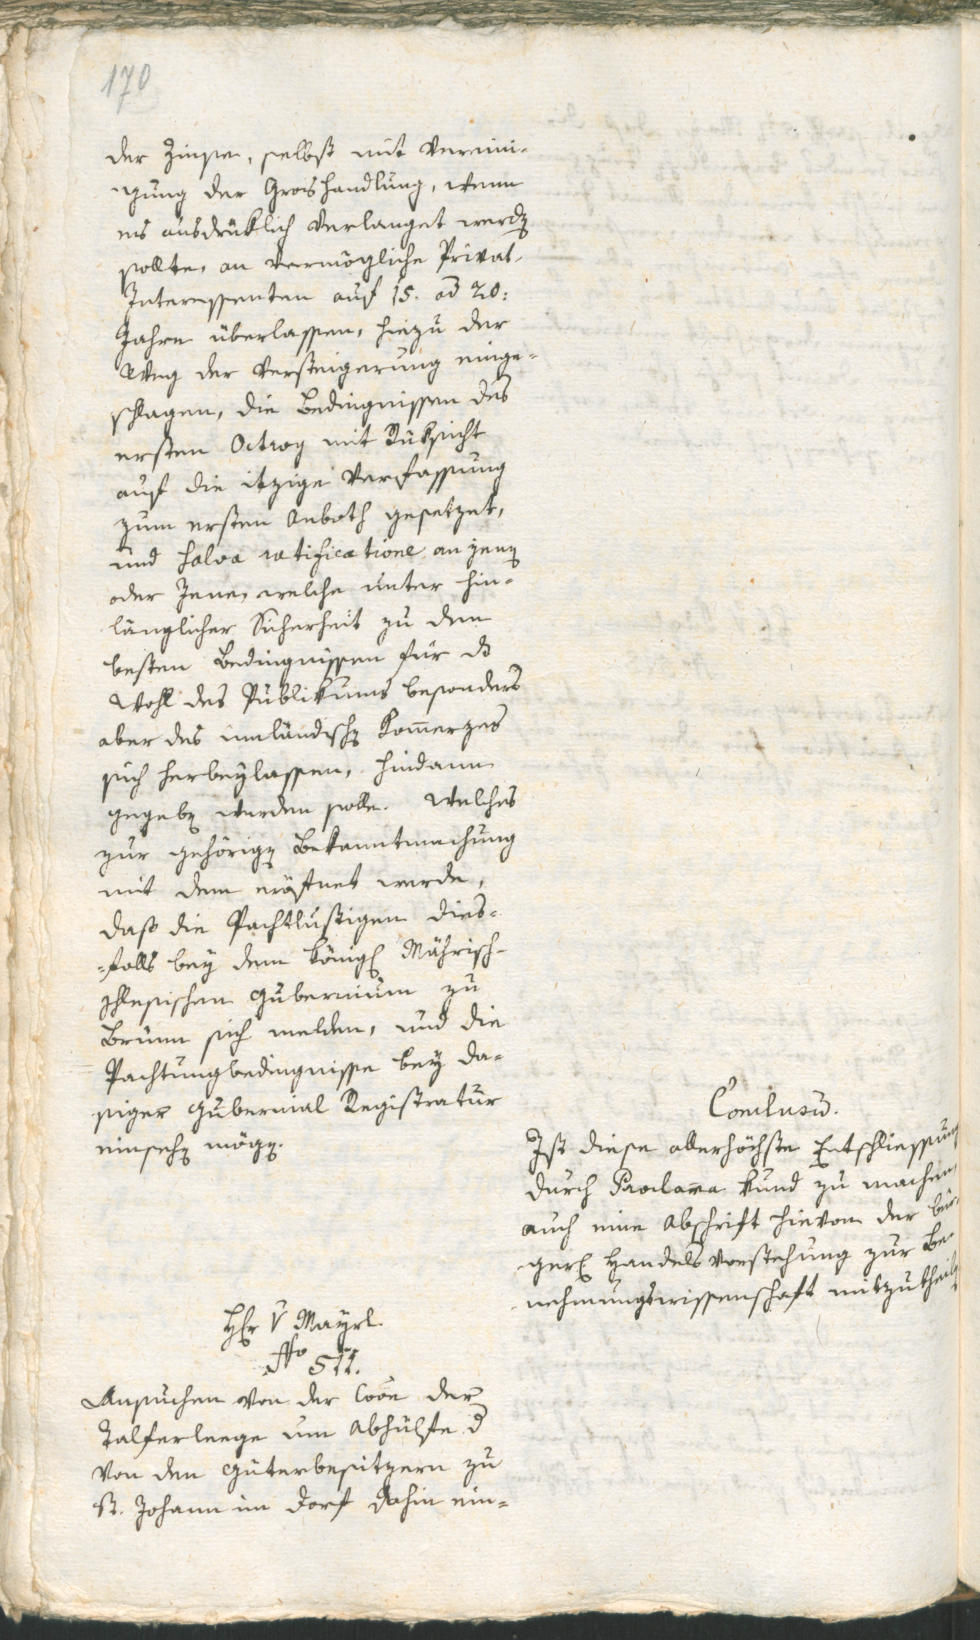 170
der Zinse, selbst mit Vereini-
gung der Groshandlung, wenn
es ausdrüklich verlanget werdẽ
sollte, an vermögliche Privat-
Interessenten auf 15. od 20:
Jahre überlassen, hiezu der
Weg der Versteigerung einge-
schlagen, die Bedingnissen des
ersten Octroy mit Rüksicht
auf die itzige Verfassung
zum ersten Anboth gesetzet,
und salva ratificatione an jenẽ
oder Jene, welche unter hin-
länglicher Sicherheit zu den
besten Bedingnissen für d
Wohl des Publikums besonders
aber des innländischẽ Kom̅erzes
sich herbeylassen, hindann
gegebẽ werden solle. Welches
zur gehörigẽ Bekanntmachung
mit dem eröfnet werde,
daß die Pachtlustigen dies-
falls bey dem königl Mährisch-
schlesischen Gubernium zu
Brünn sich melden, und die
Pachtungbedingnisse bey da-
siger Gubernial Registratur
einsehẽ mögẽ.
Conclusũ.
Ist diese allerhöchste Entschliessung
durch Proclama kund zu machen,
auch eine Abschrift hievon der bür-
gerl Handels Vorstehung zur Be-
nehmungswissenschaft mitzutheilẽ
Hr V Mayrl.
Nro 511.
Ansuchen von der Coõn der
Talferleege um Abhülfe d
von den Güterbesitzern zu
St. Johann im Dorf dahin ein-